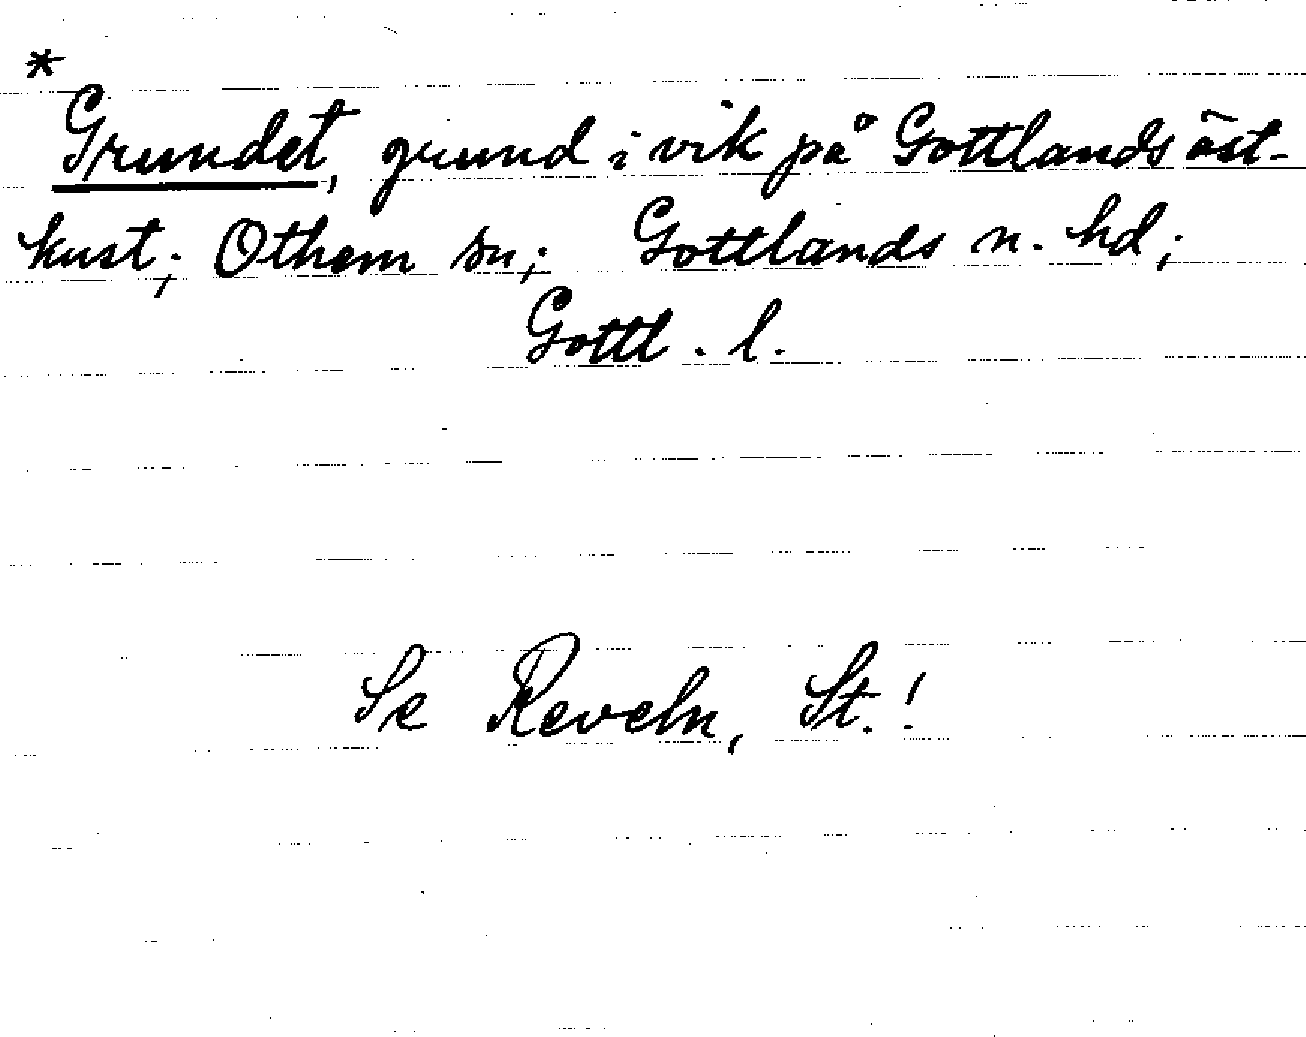 *
Grundet, grund i vik på Gottlands öst-
kust; Othem sn; Gottlands n. hd;
Gottl. l.
Se Reveln, St.!